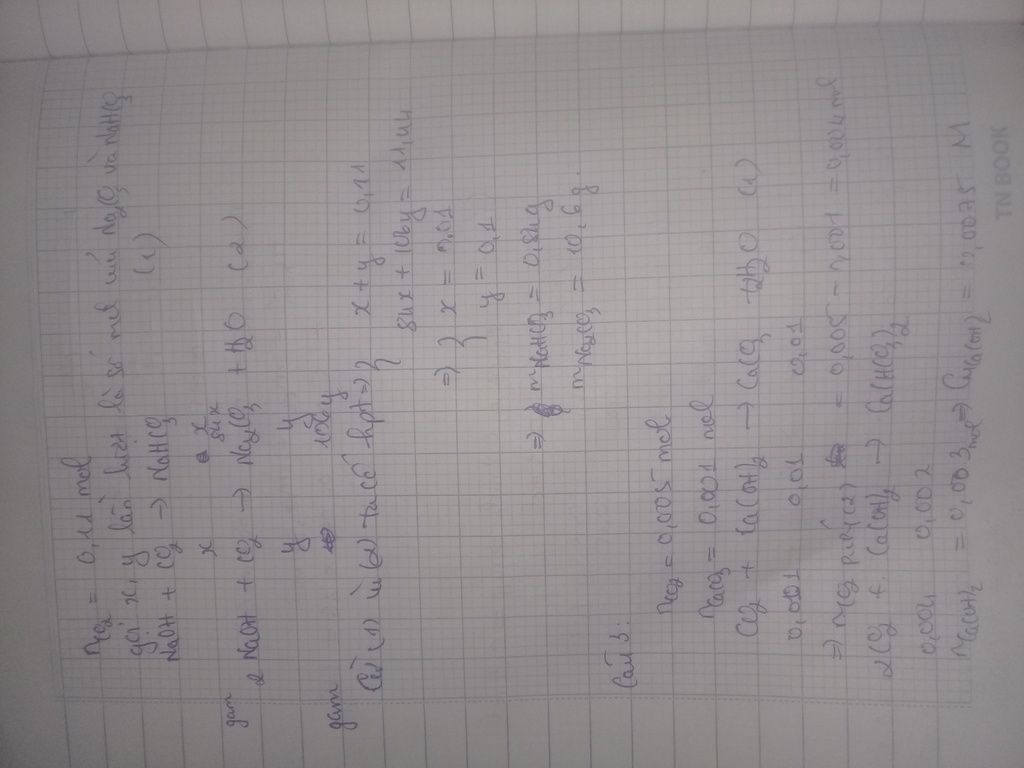 nCO2 = 0,11 mol
gọi x, y lần lượt là số mol của Na2CO3 và NaHCO3
NaOH + CO2 → NaHCO3 (1)
x x
gam 84x
2 NaOH + CO2 → Na2CO3 + H2O (2)
y y
gam 106y
Từ (1) và (2) ta có hpt => { x + y = 0,11
84x + 106y = 11,44
=> { x = 0,01
y = 0,1
=> mNaHCO3 = 0,84g
mNa2CO3 = 10,6g.
Câu 3:
nCO2 = 0,005 mol
nCaCO3 = 0,001 mol
CO2 + Ca(OH)2 → CaCO3 + H2O (1)
0,001 0,01 0,01
=> nCO2 phản ứ(2) = 0,005 - 0,001 = 0,004 mol
2CO2 + Ca(OH)2 → Ca(HCO3)2
0,004 0,002
nCa(OH)2 = 0,003 mol => CMCa(OH)2 = 0,0075 M
TN BOOK